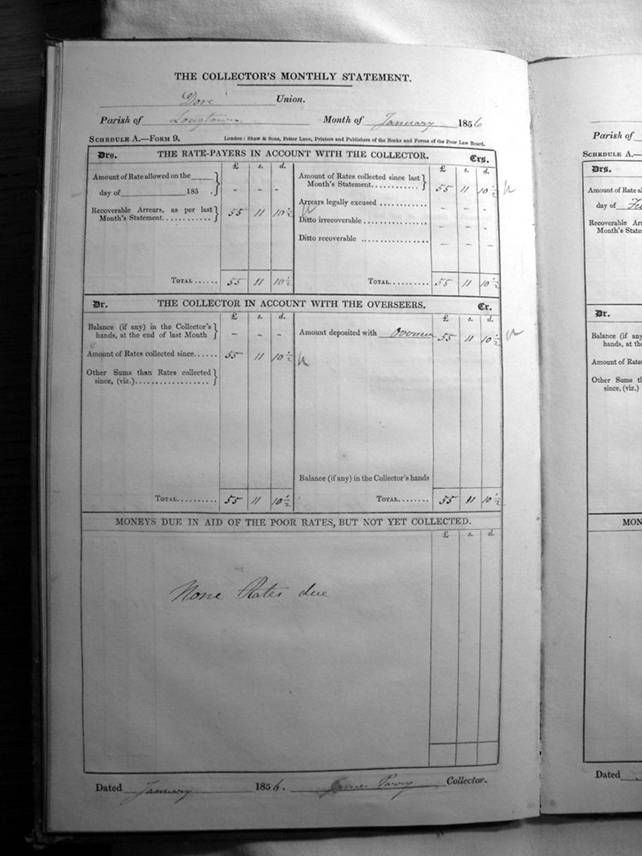 THE COLLECTOR'S MONTHLY STATEMENT.
Dore Union.
Parish of Longtown Month of January 1856
SCHEDULE A.—FORM 9. London: Shaw & Sons, Fetter Lane, Printers and Publishers of the Books and Forms of the Poor Law Board.
Drs. THE RATE-PAYERS IN ACCOUNT WITH THE COLLECTOR. Crs.
£ s. d. £ s. d.
Amount of Rate allowed on the
day of 185 . - - -
Amount of Rates collected since last
Month's Statement............ 55 11 10½
Arrears legally excused ............ - -
Recoverable Arrears, as per last
Month's Statement............ 55 11 10½
Ditto irrecoverable ................ - - -
Ditto recoverable ................. - - -
TOTAL...... 55 11 10½ TOTAL.......... 55 11 10½
Dr. THE COLLECTOR IN ACCOUNT WITH THE OVERSEERS. Cr.
£ s. d. £ s. d.
Balance (if any) in the Collector's
hands, at the end of last Month - - -
Amount deposited with 55 11 10½
Amount of Rates collected since...... 55 11 10½
Other Sums than Rates collected
since, (viz.)...................
Balance (if any) in the Collector's hands
TOTAL.......... 55 11 10½ TOTAL........ 55 11 10½
MONEYS DUE IN AID OF THE POOR RATES, BUT NOT YET COLLECTED.
£ s. d.
None Rates due
Dated January 1856. James Parry Collector.
Parish of
SCHEDULE A.—
Drs.
Amount of Rate al
day of Fe
Recoverable Arre
Month's Statem
Dr.
Balance (if any
hands, at the
Amount of Rates
Other Sums th
since, (viz.)
MON
Dated